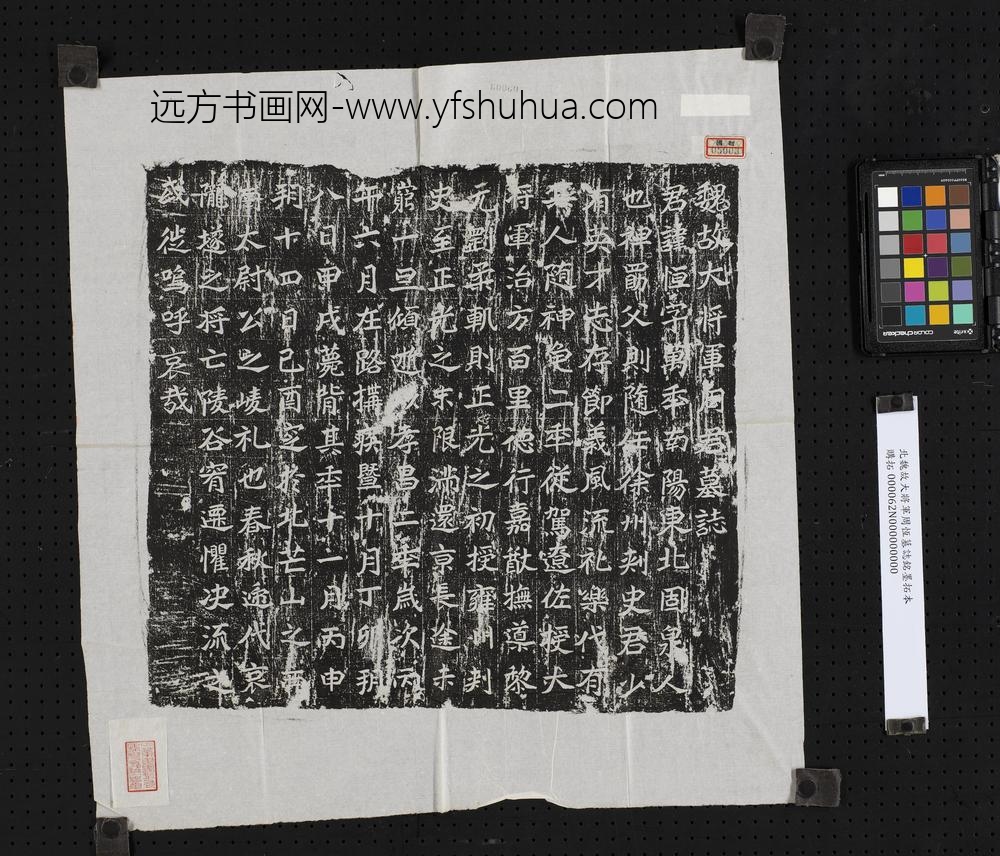 远方书画网-www.yfshuhua.com
魏故大将軍周恒墓誌
君諱恒字萬年南陽東北固泉人
也神爵父則隨年徐州刾史君少
有英才志存節義風流礼樂代有
其人随神龜二年従駕遼佐授大
将軍治方百里德行嘉猷撫導黎
元罰柔軌則正光之初授雍州判
史至正光之末限滿還京長途未
窮一旦傾逝孝昌二年歳次丙
午六月在路搆疾暨十月丁卯朔
八日甲戌薨背其年十一月丙申
朔十四日己酉窆於北芒山之西
太尉公之崚礼也春秋逓代哀
隴墜之将亡陵谷宵遷懼决流之
或従嗚呼哀哉
北魏故大將軍周恆墓誌銘墨拓本
購拓 000062N000000000
colorchecker
x-rite